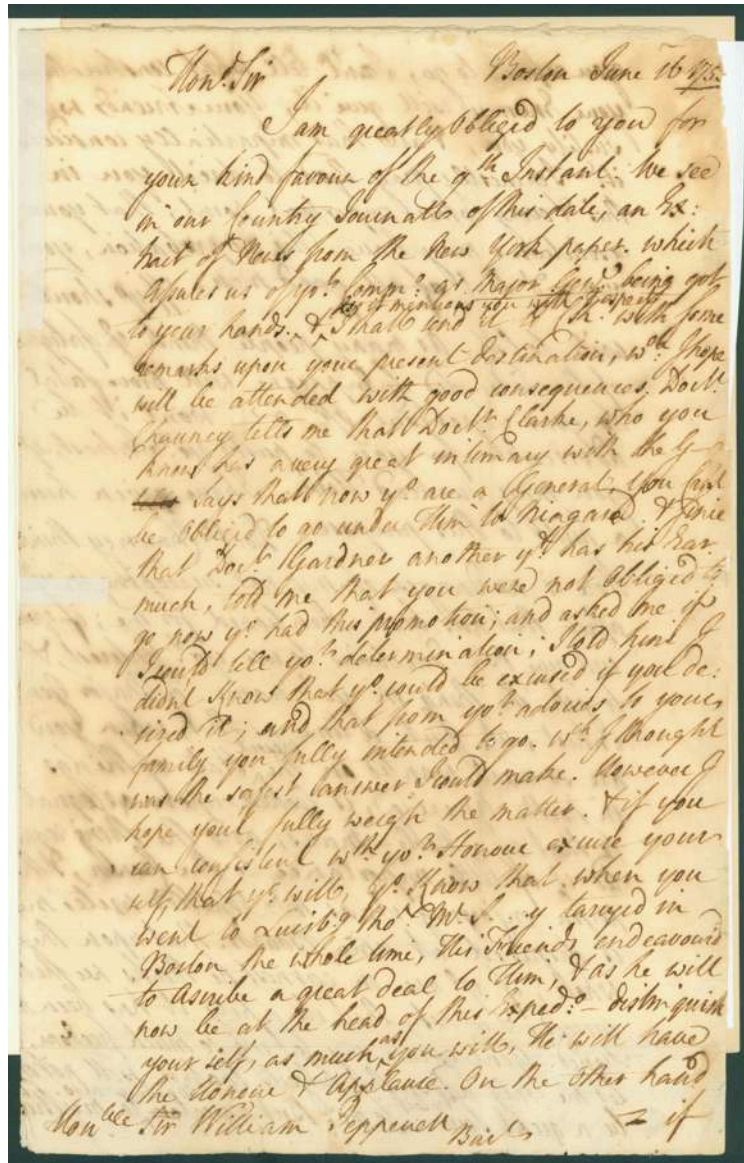 Hon.d Sir Boston June 16 175
I am greatly Obliged to you for
your kind favour of the 9th Instant: We see
in our Country Journalls of this date, an Ex:
tract of News from the New York paper. which
assures us of yo.r Comm.o as Major Gen.l being got
as it mentions you with respect
to your hands. & I shall send it to with some
remarks upon your present destination, w.ch I hope
will be attended with good consequences. Doct.r
Chauncy tells me that Doct.r Clarke, who you
know has a very great intimacy with the G
says that now y.o are a General, You cant
be obliged to go under Him to Niagara. &
that Doc.r Gardner another y.t has his Ear
much, told me that you were not obliged to
go now y.o had this promotion; and asked me if
I could tell yo.r determination; I told him I
didnt know that y.o would be excused if you de:
sired it; and that from yo.r advices to your
family you fully intended to go. w.ch I thought
was the safest answer I could make. However I
hope youl fully weigh the matter. & if you
can consistent w.th yo.r Honour excuse your
self, that y.o will, y.o Know that when you
went to Louisb.g tho' M.r S...y tarryed in
Boston the whole time, His Friends endeavour'd
to ascribe a great deal to Him, & as he will
now be at the head of this Exped.o - distinguish
your self, as much as you will, He will have
the Honour & Applause. On the other hand
Hon.ble Sir William Pepperell Bar.t if